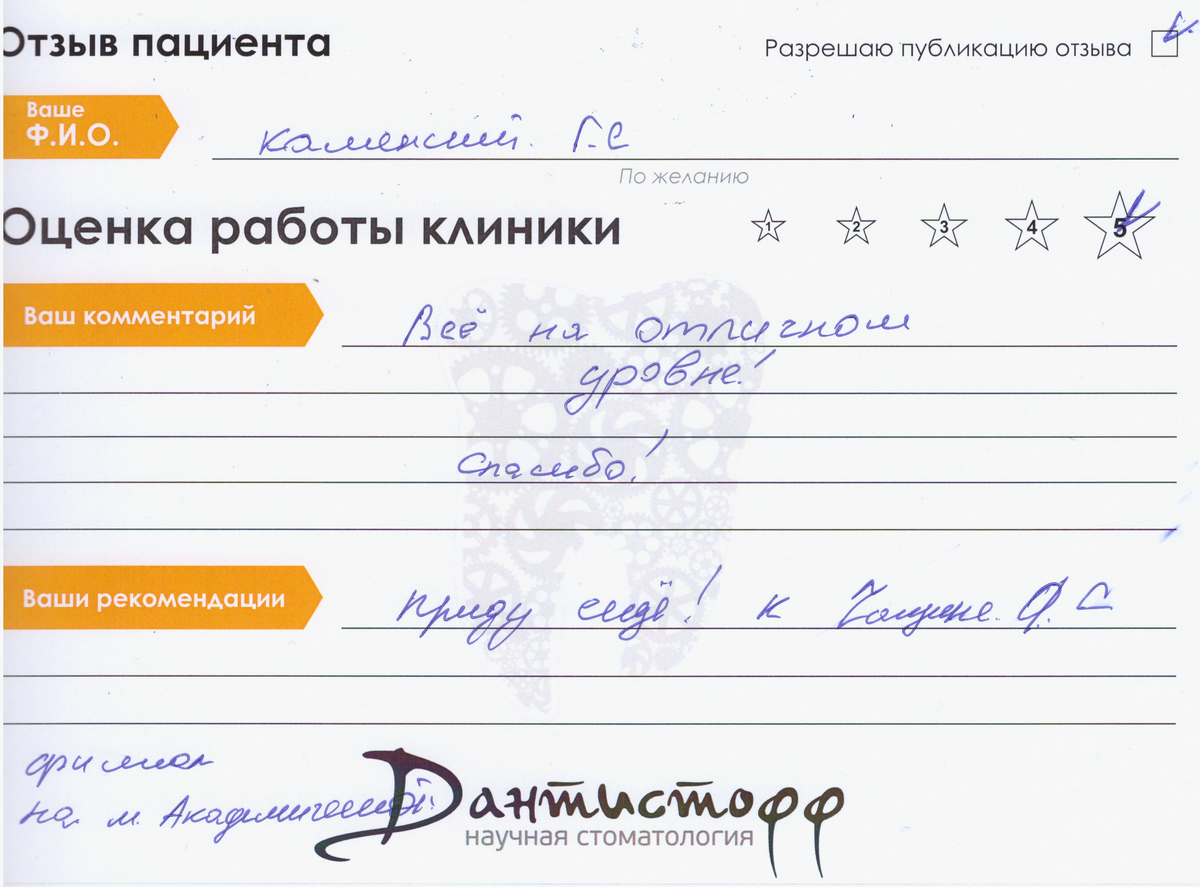 Отзыв пациента
Разрешаю публикацию отзыва
Ваше
Ф.И.О.
Каменский. Г.С
По желанию
Оценка работы клиники
1 2 3 4 5
Ваш комментарий
Всё на отличном
уровне!
Спасибо!
Ваши рекомендации
приду ещё! к
филиал
на м. Академической.
Дантистофф
научная стоматология